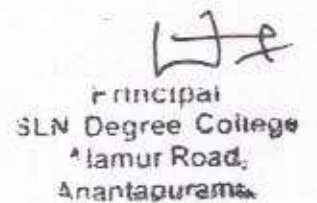 Principal
SLN Degree College
Alamur Road,
Anantapuramu.